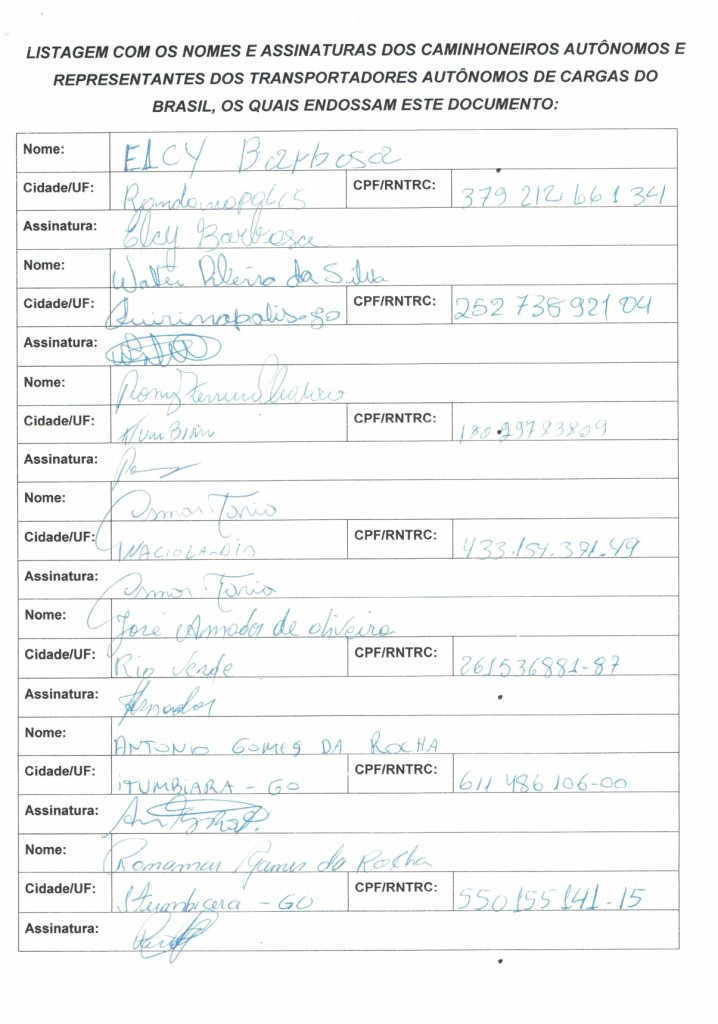 LISTAGEM COM OS NOMES E ASSINATURAS DOS CAMINHONEIROS AUTÔNOMOS E
REPRESENTANTES DOS TRANSPORTADORES AUTÔNOMOS DE CARGAS DO
BRASIL, OS QUAIS ENDOSSAM ESTE DOCUMENTO:
Nome: ELCY Barbosa
Cidade/UF: CPF/RNTRC: 379 212 661 34
Assinatura: Elcy Barbosa
Nome: Walter Ribeiro da Silva
Cidade/UF: Quirinopolis-go CPF/RNTRC: 252 736 921 04
Assinatura:
Nome:
Cidade/UF: CPF/RNTRC: 180 29783809
Assinatura:
Nome: Osmar Tonio
Cidade/UF: CPF/RNTRC: 433.154.371.49
Assinatura: Osmar Tonio
Nome: José Amador de oliveira
Cidade/UF: Rio Verde CPF/RNTRC: 261536881-87
Assinatura: Amador
Nome: ANTONIO GOMES DA ROCHA
Cidade/UF: ITUMBIARA - GO CPF/RNTRC: 611 486 106-00
Assinatura:
Nome: Gomes da Rocha
Cidade/UF: Itumbiara - GO CPF/RNTRC: 550155141-15
Assinatura: